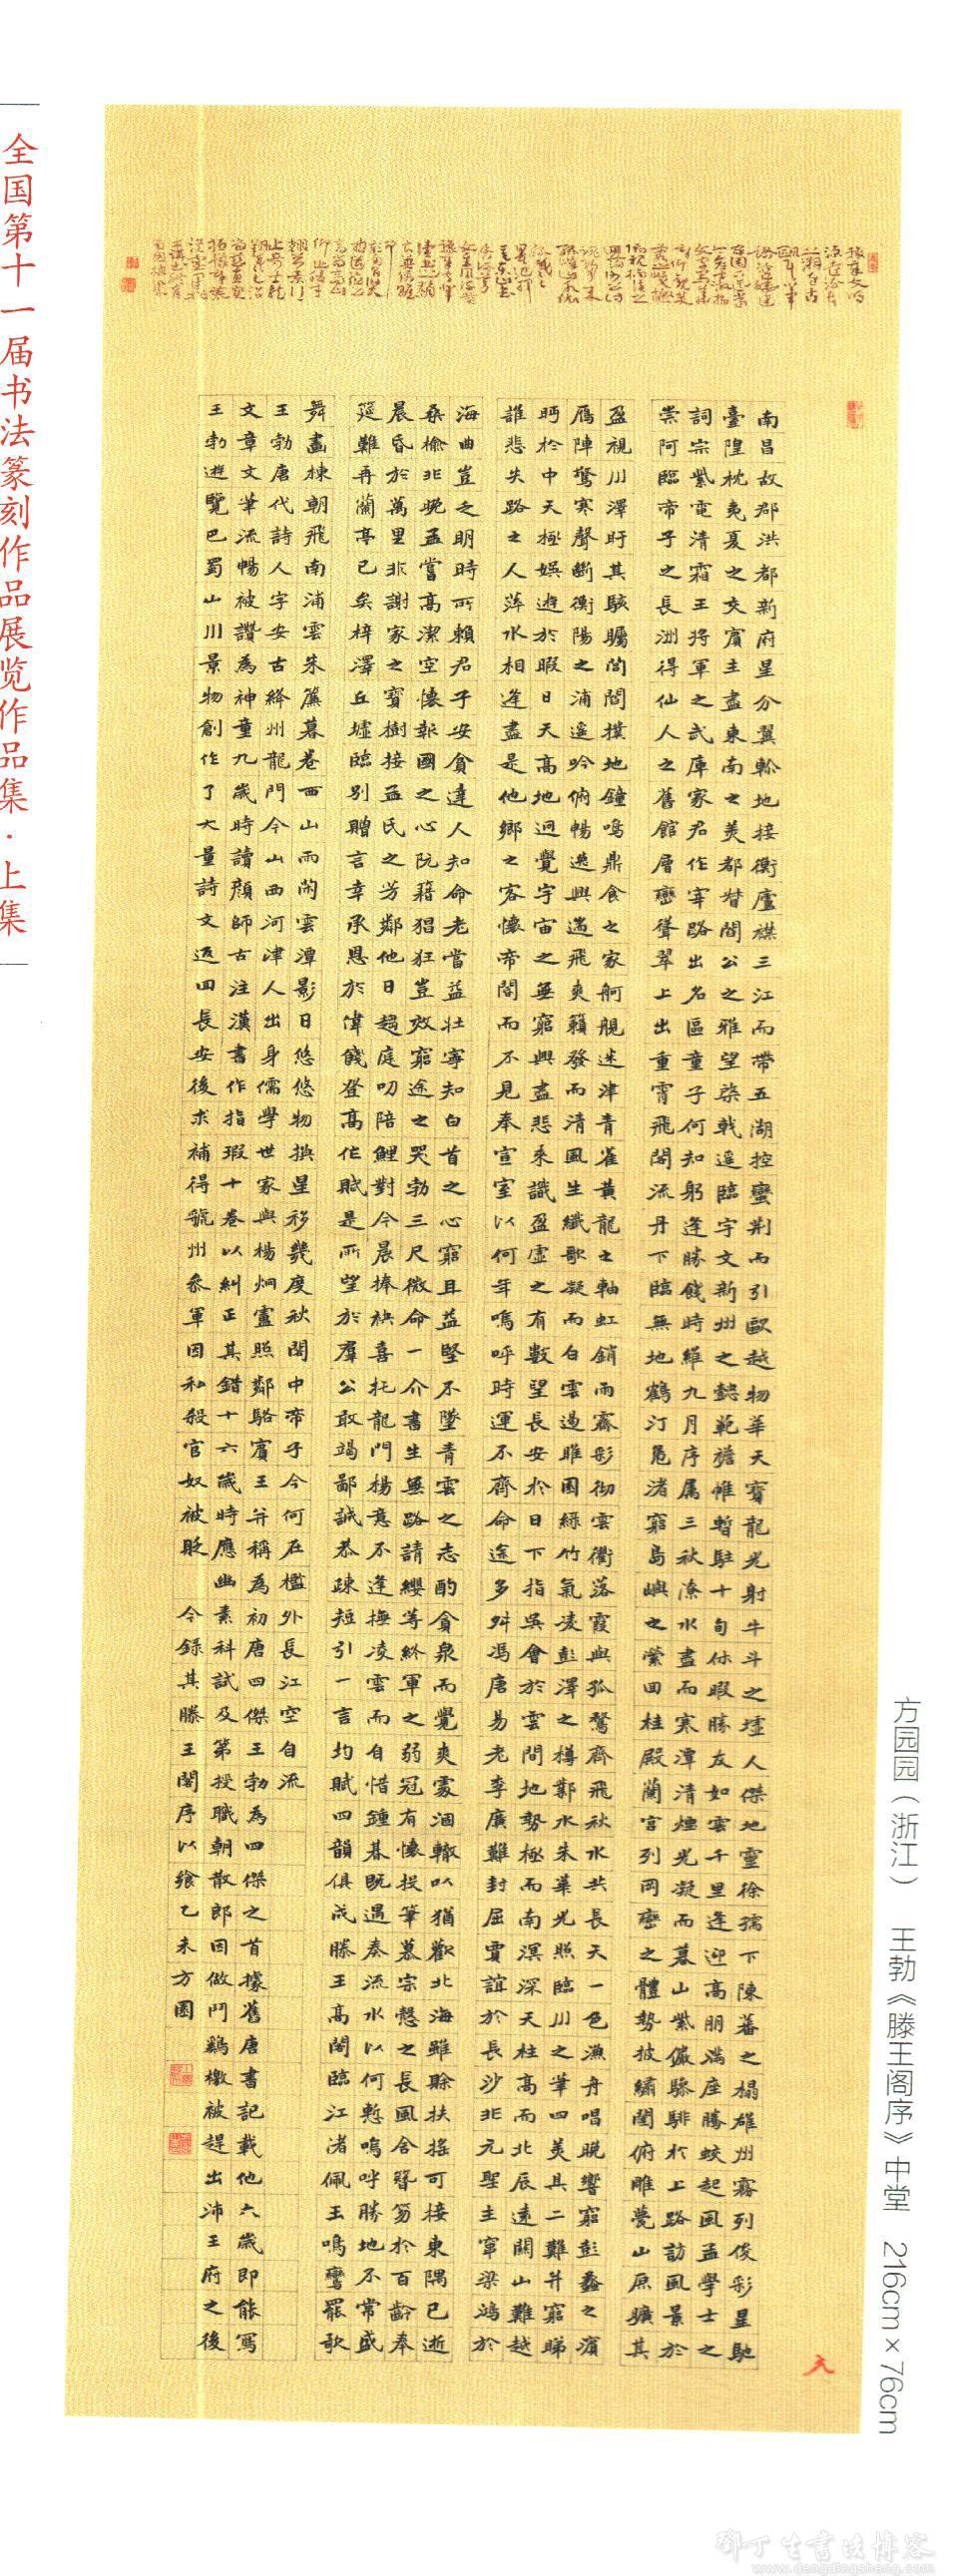 全国第十一届书法篆刻作品展览作品集·上集
南昌故郡洪都新府星分翼軫地接衡廬襟三江而帶五湖控蠻荊而引歐越物華天寶龍光射牛斗之墟人傑地靈徐孺下陳蕃之榻雄州霧列俊彩星馳
臺隍枕夷夏之交賓主盡東南之美都督閻公之雅望棨戟遥臨宇文新州之懿範襜帷暫駐十旬休暇勝友如雲千里逢迎高朋滿座騰蛟起鳳孟學士之
詞宗紫電清霜王將軍之武庫家君作宰路出名區童子何知躬逢勝餞時維九月序属三秋潦水盡而寒潭清煙光凝而暮山紫儼驂騑於上路訪風景於
崇阿臨帝子之長洲得仙人之舊館層巒聳翠上出重霄飛閣流丹下臨無地鶴汀鳧渚窮島嶼之縈回桂殿蘭宮列岡巒之體勢披繡闥俯雕甍山原曠其
盈視川澤盱其駭矚閭閻撲地鐘鳴鼎食之家舸艦迷津青雀黃龍之軸虹銷雨霽彩徹雲衢落霞與孤鶩齊飛秋水共長天一色漁舟唱晚響窮彭蠡之濱
雁陣驚寒聲斷衡陽之浦遥吟俯暢逸興遄飛爽籟發而清風生纖歌凝而白雲遏睢園綠竹氣凌彭澤之樽鄴水朱華光照臨川之筆四美具二難并窮睇
眄於中天極娛遊於暇日天高地迥覺宇宙之無窮興盡悲來識盈虛之有數望長安於日下指吳會於雲間地勢極而南溟深天柱高而北辰遠關山難越
誰悲失路之人萍水相逢盡是他鄉之客懷帝閽而不見奉宣室以何年嗚呼時運不齊命途多舛馮唐易老李廣難封屈賈誼於長沙非无聖主竄梁鴻於
海曲豈乏明時所賴君子安貧達人知命老當益壯寧知白首之心窮且益堅不墜青雲之志酌貪泉而覺爽處涸轍以猶歡北海雖賒扶搖可接東隅已逝
桑榆非晚孟嘗高潔空懷報國之心阮籍猖狂豈效窮途之哭勃三尺微命一介書生無路請纓等終軍之弱冠有懷投筆慕宗慤之長風舍簪笏於百齡奉
晨昏於萬里非謝家之寶樹接孟氏之芳鄰他日趨庭叨陪鯉對今晨捧袂喜托龍門楊意不逢撫凌雲而自惜鍾朞既遇奏流水以何慚嗚呼勝地不常盛
筵難再蘭亭已矣梓澤丘墟臨別贈言幸承恩於偉餞登高作賦是所望於羣公敢竭鄙誠恭疎短引一言均賦四韻俱成滕王高閣臨江渚佩玉鳴鸞罷歌
舞畫棟朝飛南浦雲朱簾暮卷西山雨閑雲潭影日悠悠物換星移幾度秋閣中帝子今何在檻外長江空自流
王勃唐代詩人字安古絳州龍門今山西河津人出身儒學世家與楊炯盧照鄰駱賓王并稱為初唐四傑王勃為四傑之首據舊唐書記載他六歲即能寫
文章文筆流暢被讚為神童九歲時讀顏師古注漢書作指瑕十卷以糾正其錯十六歲時應幽素科試及第授職朝散郎因做鬥鷄檄被趕出沛王府之後
王勃遊覽巴蜀山川景物創作了大量詩文返回長安後求補得虢州參軍因私殺官奴被貶 今錄其滕王閣序以飨乙未方園
方园园（浙江） 王勃《滕王阁序》中堂 216cm×76cm
邓丁生书法博客
www.dengdingsheng.com